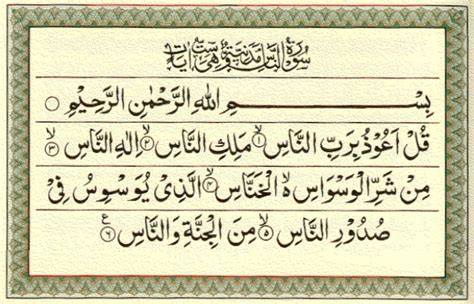 سُوْرَةُ النَّاسِ مَدَنِيَّةٌ وَّهِيَ سِتُّ اٰيَاتٍ
بِسْمِ اللهِ الرَّحْمٰنِ الرَّحِيْمِ ○
قُلْ اَعُوْذُ بِرَبِّ النَّاسِ ۙ﴿۱﴾ مَلِكِ النَّاسِ ۙ﴿۲﴾ اِلٰهِ النَّاسِ ۙ﴿۳﴾
مِنْ شَرِّ الْوَسْوَاسِ ۙ۬ الْخَنَّاسِ ۙ﴿۴﴾ الَّذِیْ يُوَسْوِسُ فِیْ
صُدُوْرِ النَّاسِ ۙ﴿۵﴾ مِنَ الْجِنَّةِ وَالنَّاسِ ﴿۶﴾ ع